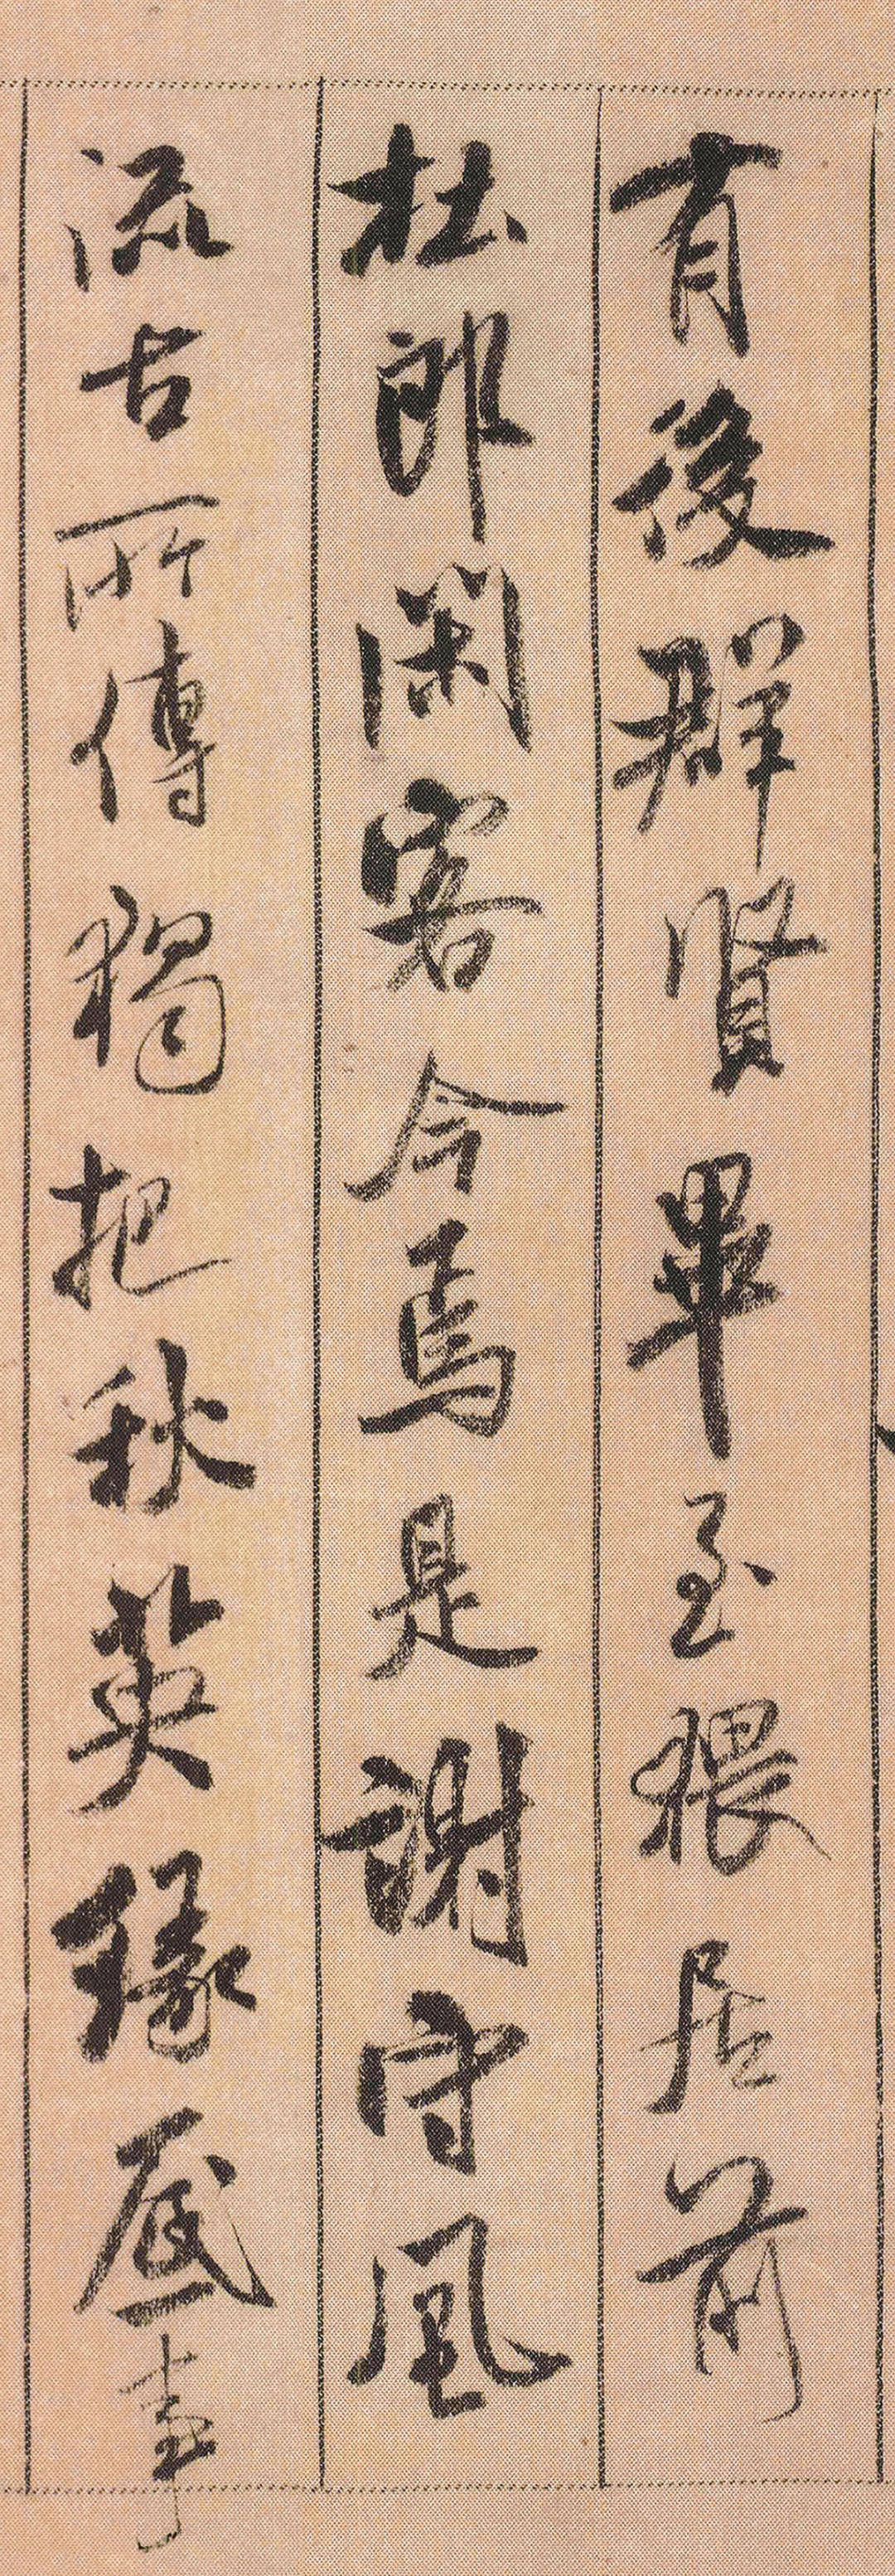 有後群賢畢至猥居前
杜郎閑客今焉是謝守風
流古所傳獨把秋英緣底事